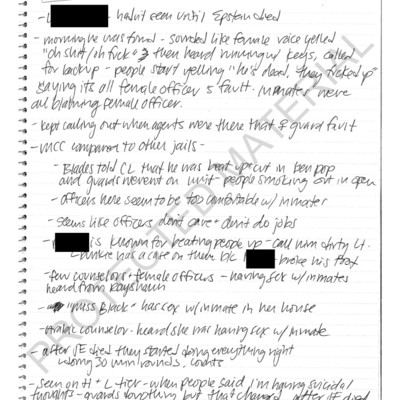 - hadn't seen until Epstein died
- morning he was found - sounded like female voice yelled
"oh shit/oh fuck" & then heard running w/ keys, called
for backup - people start yelling "he's dead, they fucked up"
saying its all female officer's fault. inmates were
all blaming female officer.
- kept calling out when agents were there that guard fault
- MCC comparison to other jails -
- Blades told CL that he was beat up/cut in pen
and guards weren't on unit - people smoking out in open
- officers here seem to be too comfortable w/ inmates
- seems like officers dont care + don't do jobs
- is known for beating people up - call him dirty Lt.
has a case on them b/c broke his
- few counselors + female officers - having sex w/ inmates
heard from
- "Miss Black" has sex w/ inmate in her house
- counselor - heard she was having sex w/ inmate
- after JE died they started doing everything right
doing 30 min rounds, counts
- seen on H + L tier - when people said I'm having suicidal
thoughts - guards do nothing but that changed after JE died
PROTECTED MATERIAL